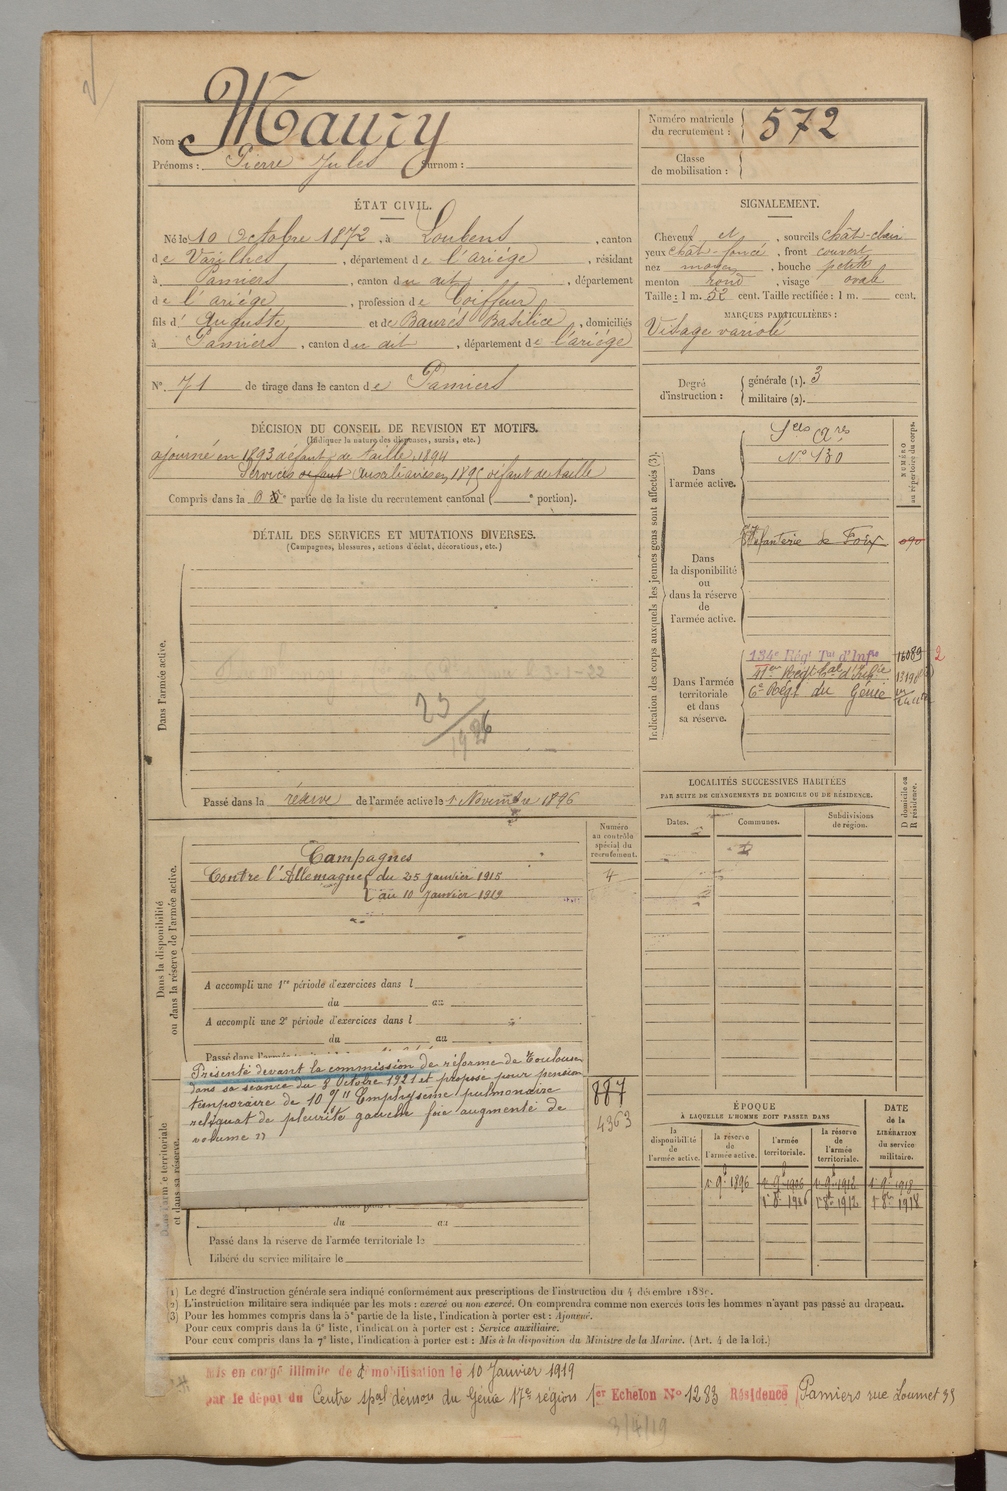 Nom : Maury
Prénoms : Pierre Jules Surnom :
Numéro matricule du recrutement : 572
Classe de mobilisation :
ÉTAT CIVIL.
Né le 10 Octobre 1872, à Loubens, canton
de Varilhes, département de l'ariége, résidant
à Pamiers, canton du dit, département
de l'ariége, profession de Coiffeur
fils d' Auguste et de Baurés Basilice, domiciliés
à Pamiers, canton du dit, département de l'ariége
N°. 71 de tirage dans le canton de Pamiers
SIGNALEMENT.
Cheveux et, sourcils chât-clair
yeux chât-foncé, front couvert
nez moyen, bouche petite
menton rond, visage ovale
Taille : 1 m. 52 cent. Taille rectifiée : 1 m. cent.
MARQUES PARTICULIÈRES :
Visage variolé
Degré d'instruction : générale (1). 3
militaire (2).
DÉCISION DU CONSEIL DE REVISION ET MOTIFS.
(Indiquer la nature des dispenses, sursis, etc.)
ajourné en 1893 défaut de taille, 1894
Services auxiliaires en 1895 défaut de taille
Compris dans la partie de la liste du recrutement cantonal ( e portion).
DÉTAIL DES SERVICES ET MUTATIONS DIVERSES.
(Campagnes, blessures, actions d'éclat, décorations, etc.)
Dans l'armée active.
3-1-22
23/1926
Passé dans la réserve de l'armée active le 1er Novembre 1896
Indication des corps auxquels les jeunes gens sont affectés (3).
NUMÉRO au répertoire du corps.
Dans l'armée active.
Sces Qres
N° 130
Dans la disponibilité ou dans la réserve de l'armée active.
Infanterie de Foix
090
Dans l'armée territoriale et dans sa réserve.
134e Régt Tal d'Infie 16089 2
6e Régt du Génie
LOCALITÉS SUCCESSIVES HABITÉES
PAR SUITE DE CHANGEMENTS DE DOMICILE OU DE RÉSIDENCE.
Dates. Communes. Subdivisions de région. D domicile ou R résidence.
Dans la disponibilité ou dans la réserve de l'armée active.
Numéro au contrôle spécial du recrutement.
4
Campagnes
Contre l'Allemagne du 25 Janvier 1915
au 10 Janvier 1919
A accompli une 1re période d'exercices dans l
du au
A accompli une 2e période d'exercices dans l
du au
Présenté devant la commission de réforme de Toulouse
dans sa séance du 8 Octobre 1921 et proposé pour pension
temporaire de 10 % "Emphysème pulmonaire
reliquat de pleurite gauche foie augmenté de
volume "
887
4363
ÉPOQUE
À LAQUELLE L'HOMME DOIT PASSER DANS
DATE de la LIBÉRATION du service militaire.
la disponibilité de l'armée active. la réserve de l'armée active. l'armée territoriale. la réserve de l'armée territoriale.
1er 9bre 1896 1er 9bre 1906 1er 9bre 1912 1er 9bre 1918
1er 8bre 1906 1er 8bre 1912 1er 8bre 1918
Dans l'armée territoriale et dans sa réserve.
du au
Passé dans la réserve de l'armée territoriale le
Libéré du service militaire le
(1) Le degré d'instruction générale sera indiqué conformément aux prescriptions de l'instruction du 4 décembre 1889.
(2) L'instruction militaire sera indiquée par les mots : exercé ou non exercé. On comprendra comme non exercés tous les hommes n'ayant pas passé au drapeau.
(3) Pour les hommes compris dans la 5e partie de la liste, l'indication à porter est : Ajourné.
Pour ceux compris dans la 6e liste, l'indication à porter est : Service auxiliaire.
Pour ceux compris dans la 7e liste, l'indication à porter est : Mis à la disposition du Ministre de la Marine. (Art. 4 de la loi.)
Mis en congé illimité de démobilisation le 10 Janvier 1919
par le dépôt du Centre spal démou du Génie 17e région 1er Echelon N° 1283 Résidence Pamiers rue Loumet 35
3/4/19